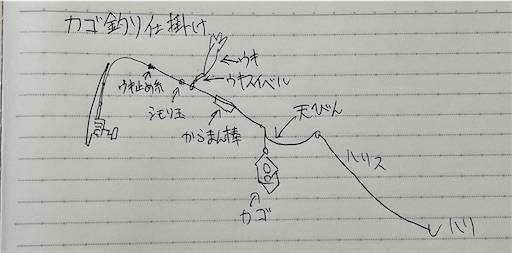 カゴ釣り仕掛け
ウキ
ウキスイベル
ウキ止め糸
シモリ玉
からまん棒
天びん
ハリス
カゴ
ハリ